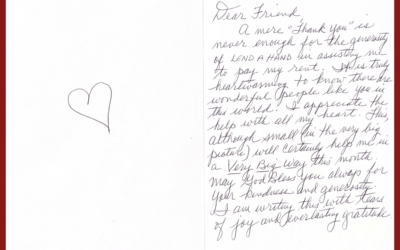 Dear Friend,
A mere "Thank You" is
never enough for the generosity
of LEND A HAND in assisting me
to pay my rent. It is truly
heartwarming to know there are
wonderful people like you in
this world! I appreciate the
help with all my heart. This,
although small (in the very big
picture) will certainly help me in
a Very Big Way this month.
May God Bless you always for
your kindness and generosity.
I am writing this with tears
of joy and everlasting gratitude